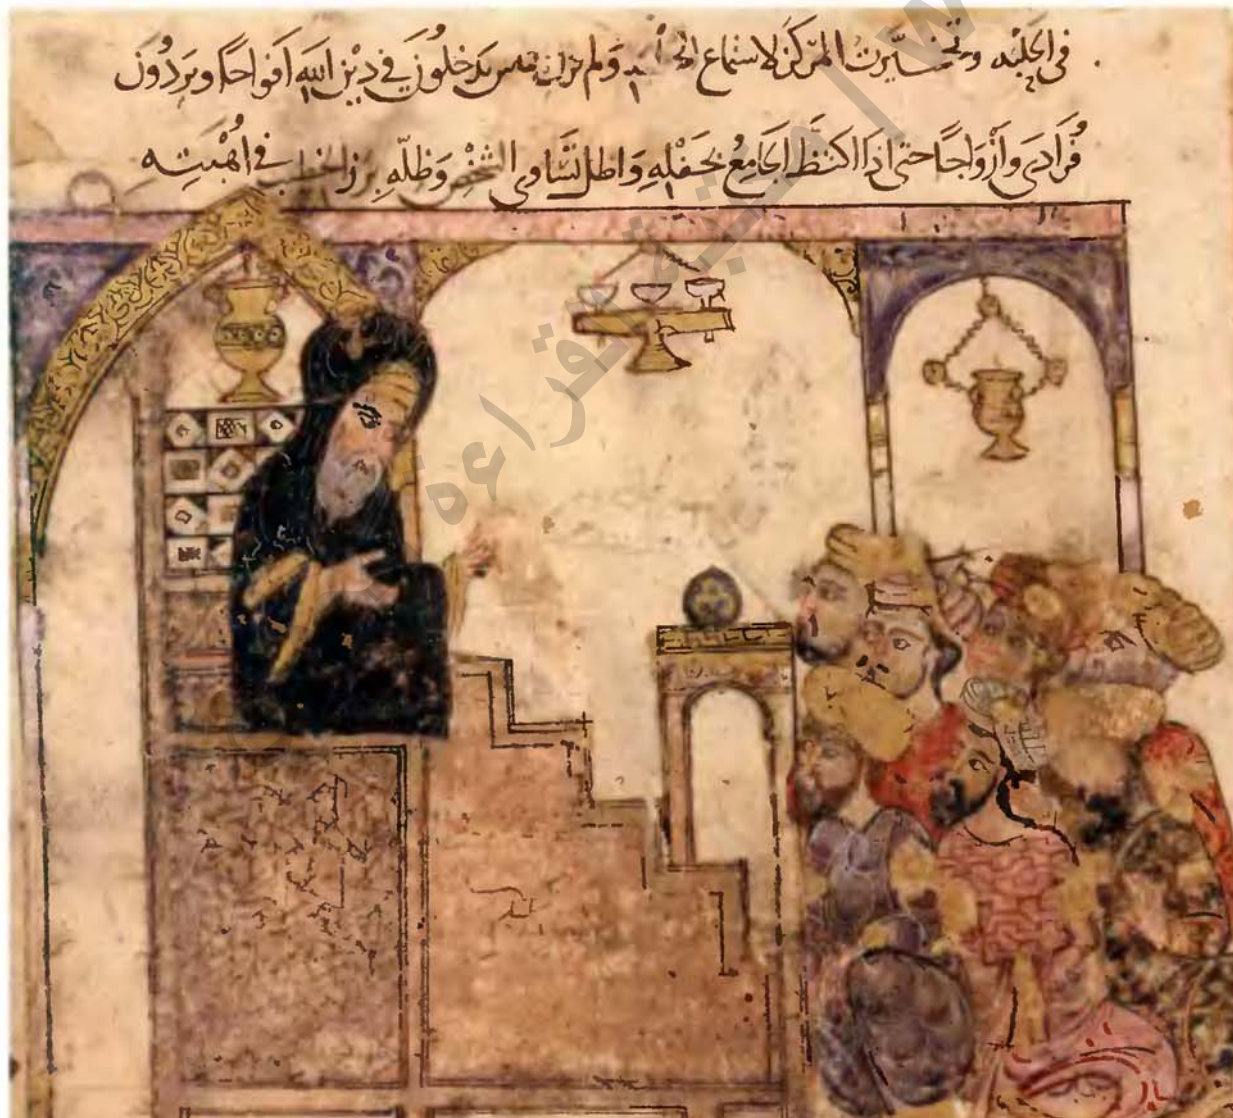 في الحلبه وتخيرت المركز لاستماع ولم يدخلون في دين الله افواجا ويردون
فُرادى وأزواجًا حتى اذا اكتظَّ الجامعُ بحَفْلِهِ واظل تساوي الشخص وظلّه برز في اُهْبَتِه